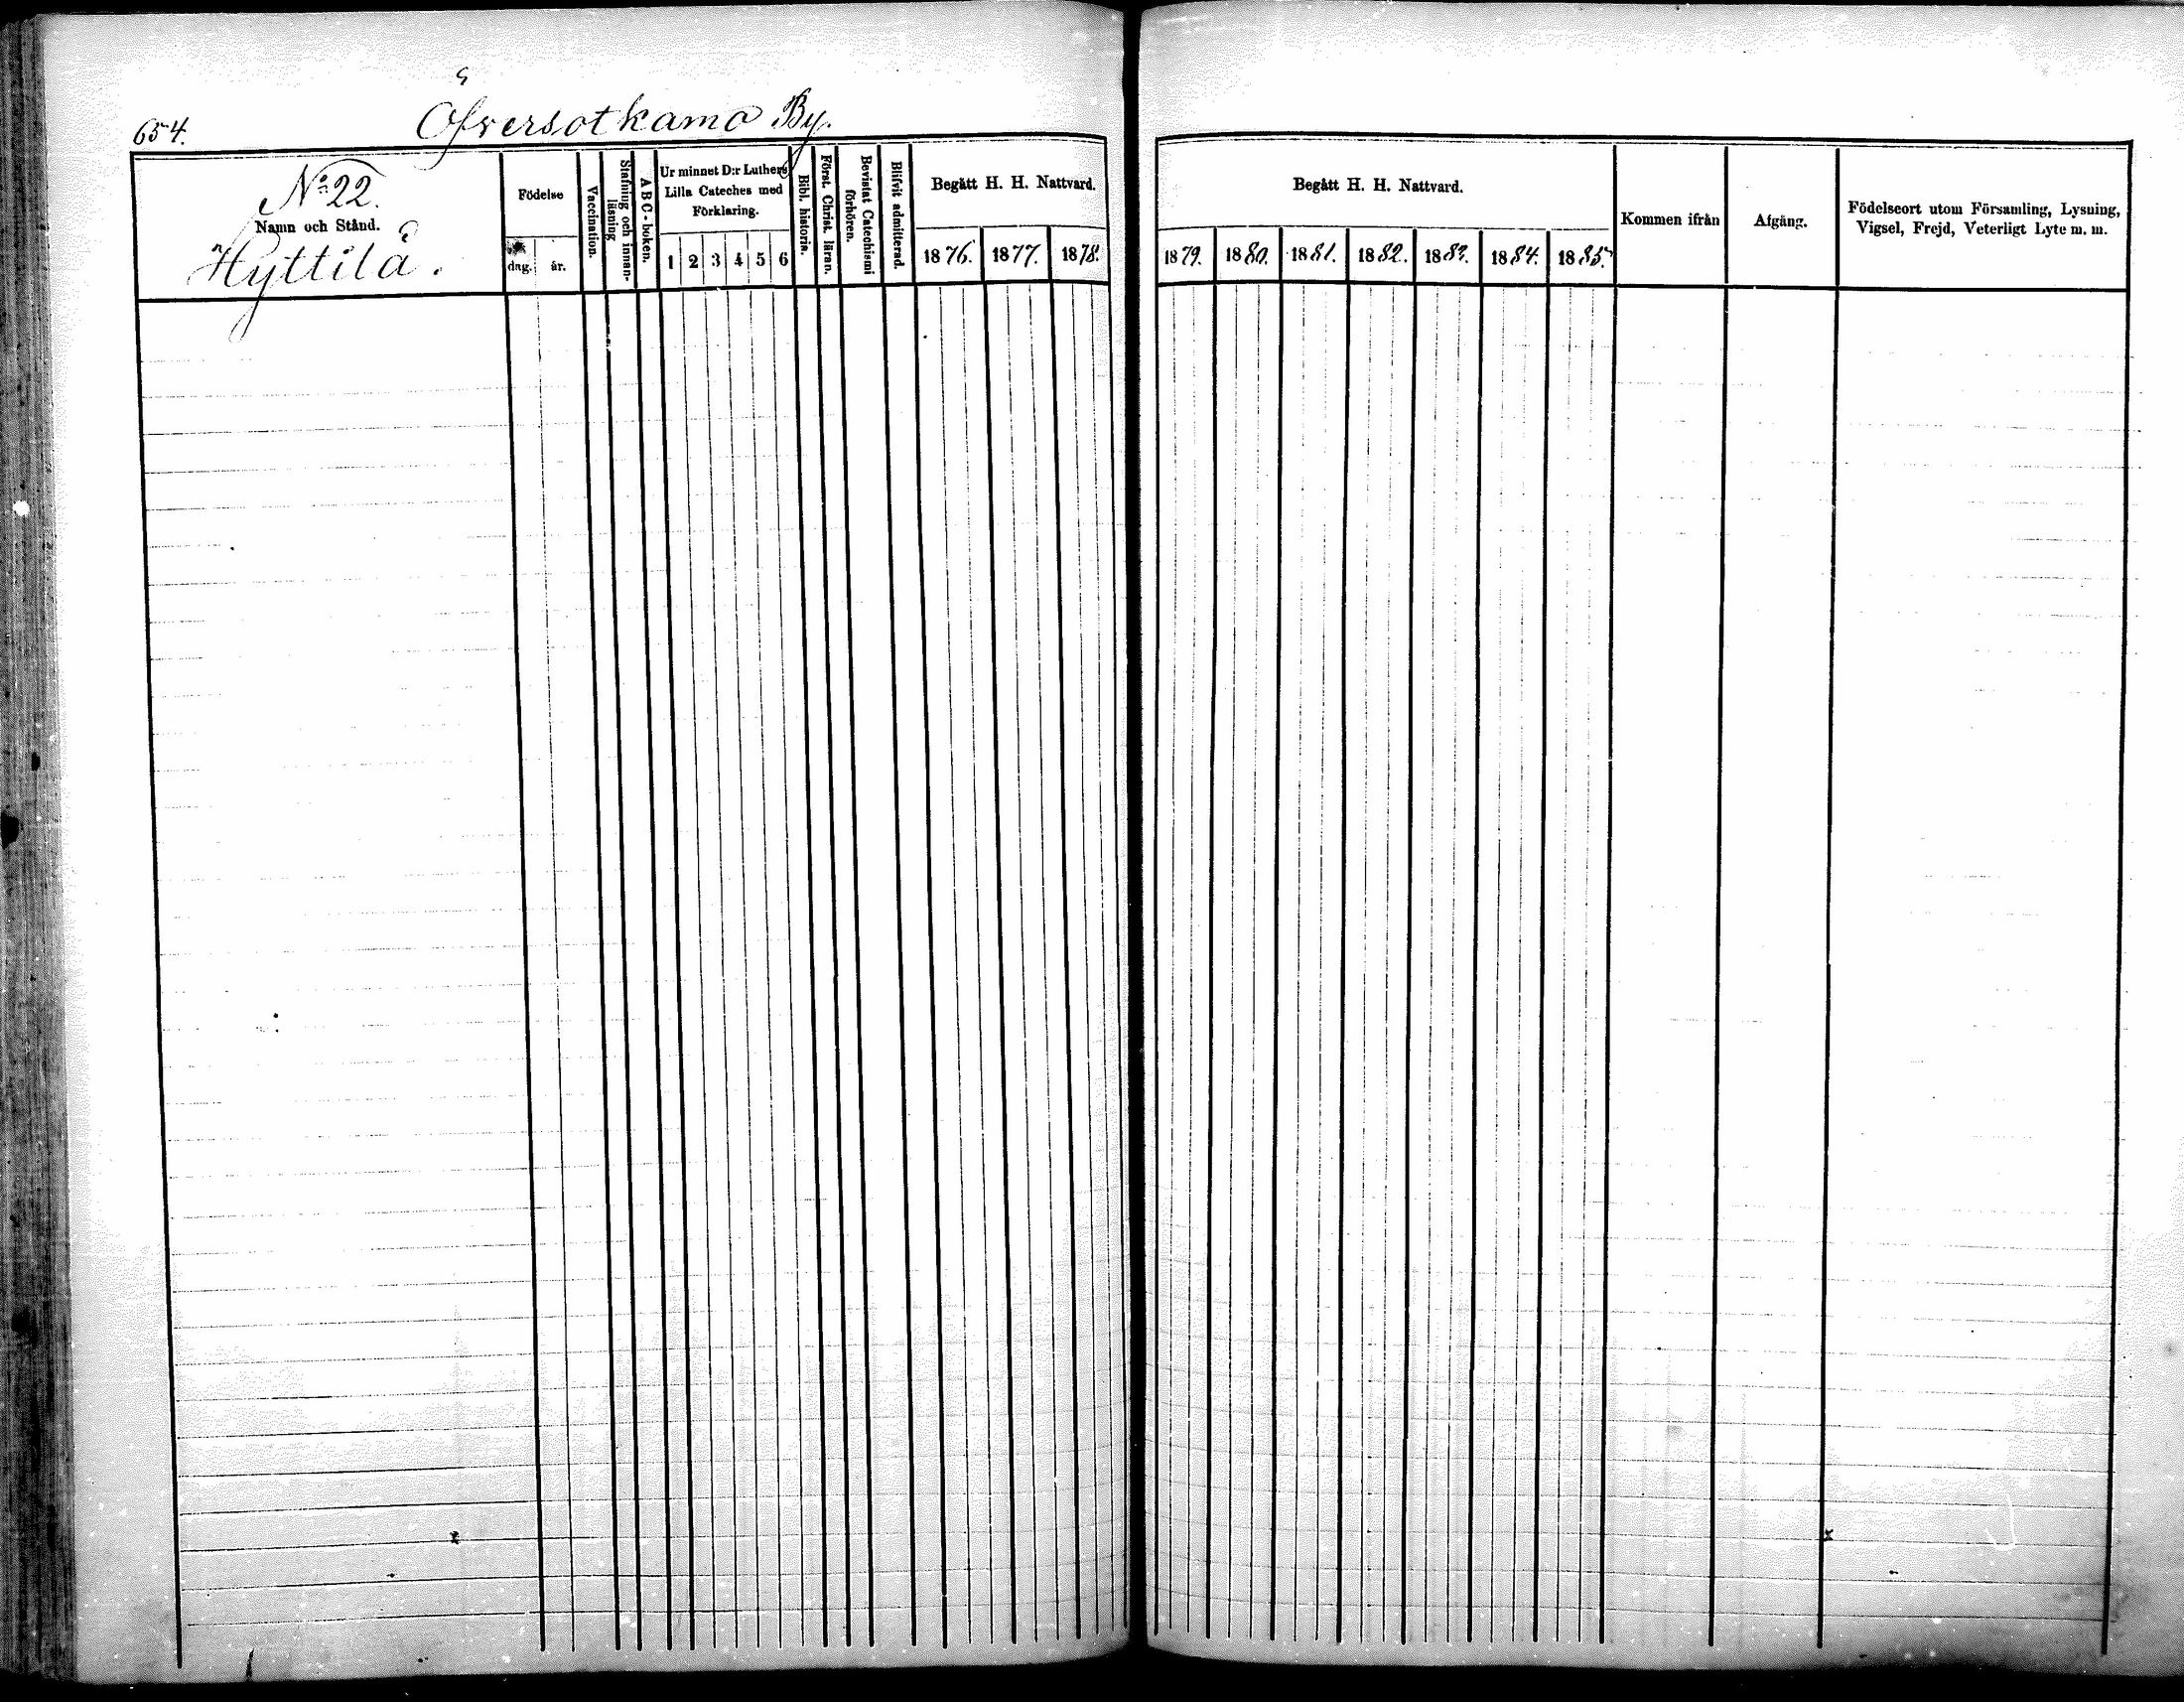 654.
Öfversotkamo By.
No 22.
Namn och Stånd.
Hyttilä.
Födelse
dag.
år.
Vaccination.
Stafning och innan-
läsning
ABC-boken.
Ur minnet D:r Luthers
Lilla Cateches med
Förklaring.
1 2 3 4 5 6
Bibl. historia.
Först. Christ. läran.
Bevistat Catechismi
förhören.
Blifvit admitterad.
Begått H. H. Nattvard.
1876. 1877. 1878.
Begått H. H. Nattvard.
1879. 1880. 1881. 1882. 1883. 1884. 1885.
Kommen ifrån
Afgång.
Födelseort utom Församling, Lysning,
Vigsel, Frejd, Veterligt Lyte m. m.